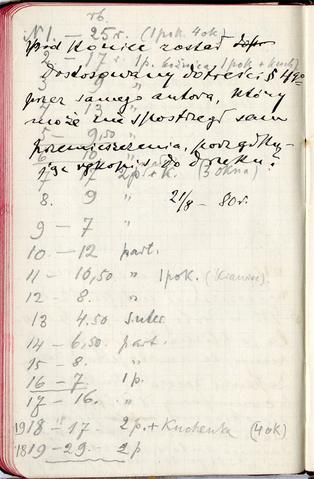 rb.
N 1. — 25 r. (1 pok. 4 ok)
pod Koniec został
2 — 17 1 p. 1 pok + kuch)
Dostosowany do treści §
3 9
przez samego autora, który
może nie spostrzegł sam
5 — 9,50
przemieszczenia, porządku-
6 — 10
jąc rękopis do druku.
7 — 17 2 p. + k. (3 okna)
8. 9 " 21/8 — 80 r.
9 — 7 "
10. — 12 part.
11 — 10,50 " 1 pok. (
12 — 8. "
13 4.50 suter.
14 — 6,50 part.
15 — 8. "
16 — 7. 1 p.
17 — 16. "
1918 — 17 2 p. + Kuchenka (4 ok)
1819 — 29. 2 p